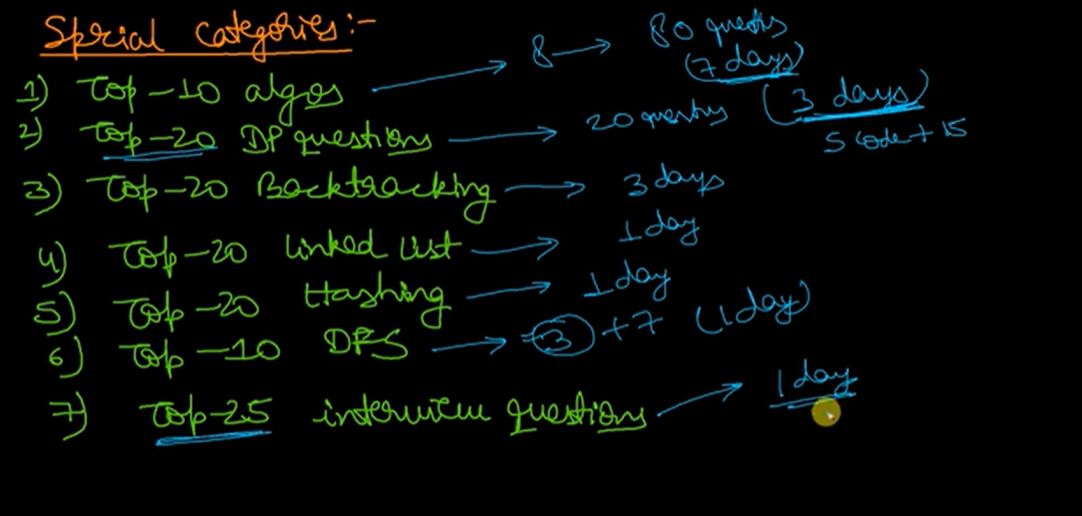 Special Categories:-
1) Top-10 algos → 8 → 80 questis (7 days)
2) Top-20 DP questions → 20 questis (3 days)
5 code + 15
3) Top-20 Backtracking → 3 days
4) Top-20 Linked List → 1 day
5) Top-20 Hashing → 1 day
6) Top-10 DFS → 3 + 7 (1 day)
7) Top-25 interview questions → 1 day